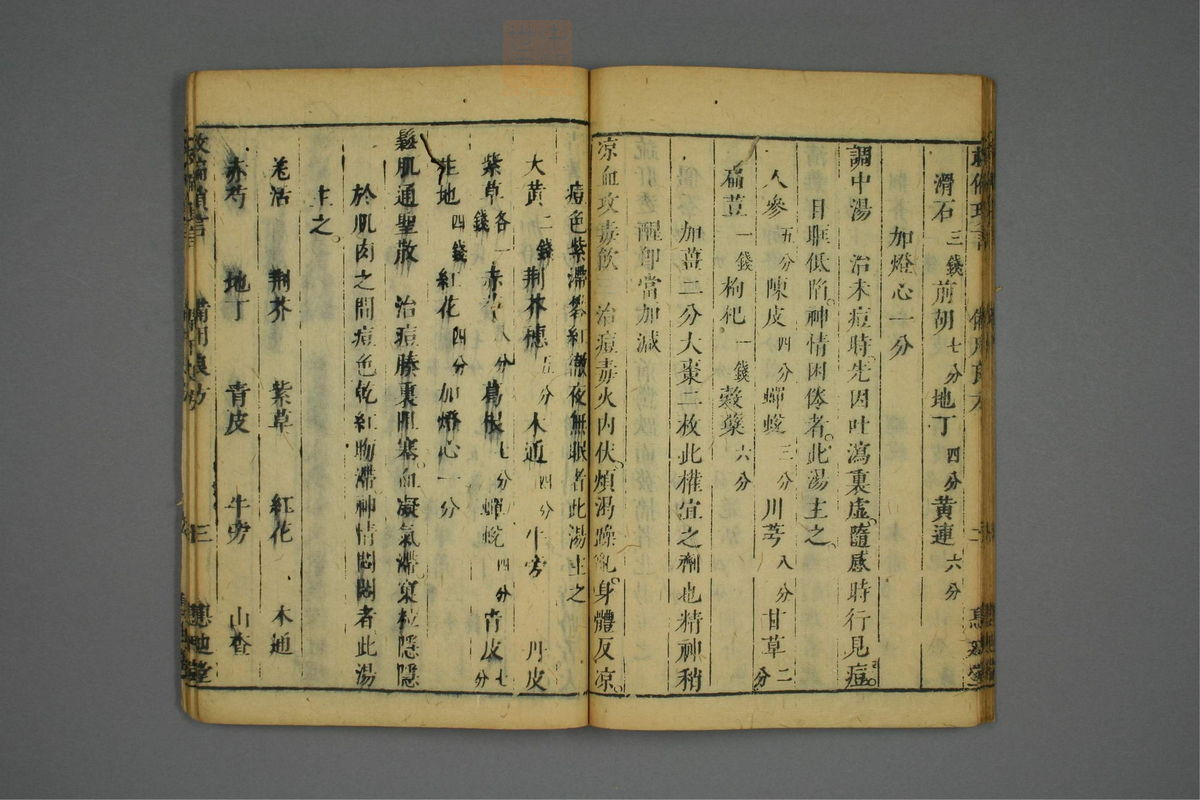 滑石三錢前胡七分地丁四分黃連六分
加燈心一分
調中湯 治未痘時先因吐瀉裏虛隨感時行見痘
目眶低陷神情困倦者此湯主之
人參五分陳皮四分蟬蛻三分川芎八分甘草二分
扁荳一錢枸杞一錢穀糵六分
加薑二分大棗二枚此權宜之劑也精神稍
醒卽當加減
凉血攻毒飲 治痘毒火內伏煩渴躁亂身體反凉
痘色紫滯礬紅徹夜無眠者此湯主之
大黃二錢荆芥穗五分木通四分牛蒡 丹皮
紫草各一錢赤芍八分葛根七分蟬蛻四分青皮七分
生地四錢紅花四分加燈心一分
鬆肌通聖散 治痘腠裏阻塞血凝氣滯窠粒隱隱
於肌肉之間痘色乾紅呦滯神情悶悶者此湯
主之
羌活 荆芥 紫草 紅花 木通
赤芍 地丁 青皮 牛蒡 山查
救偏瑣言 備用良方 三 惠迪堂